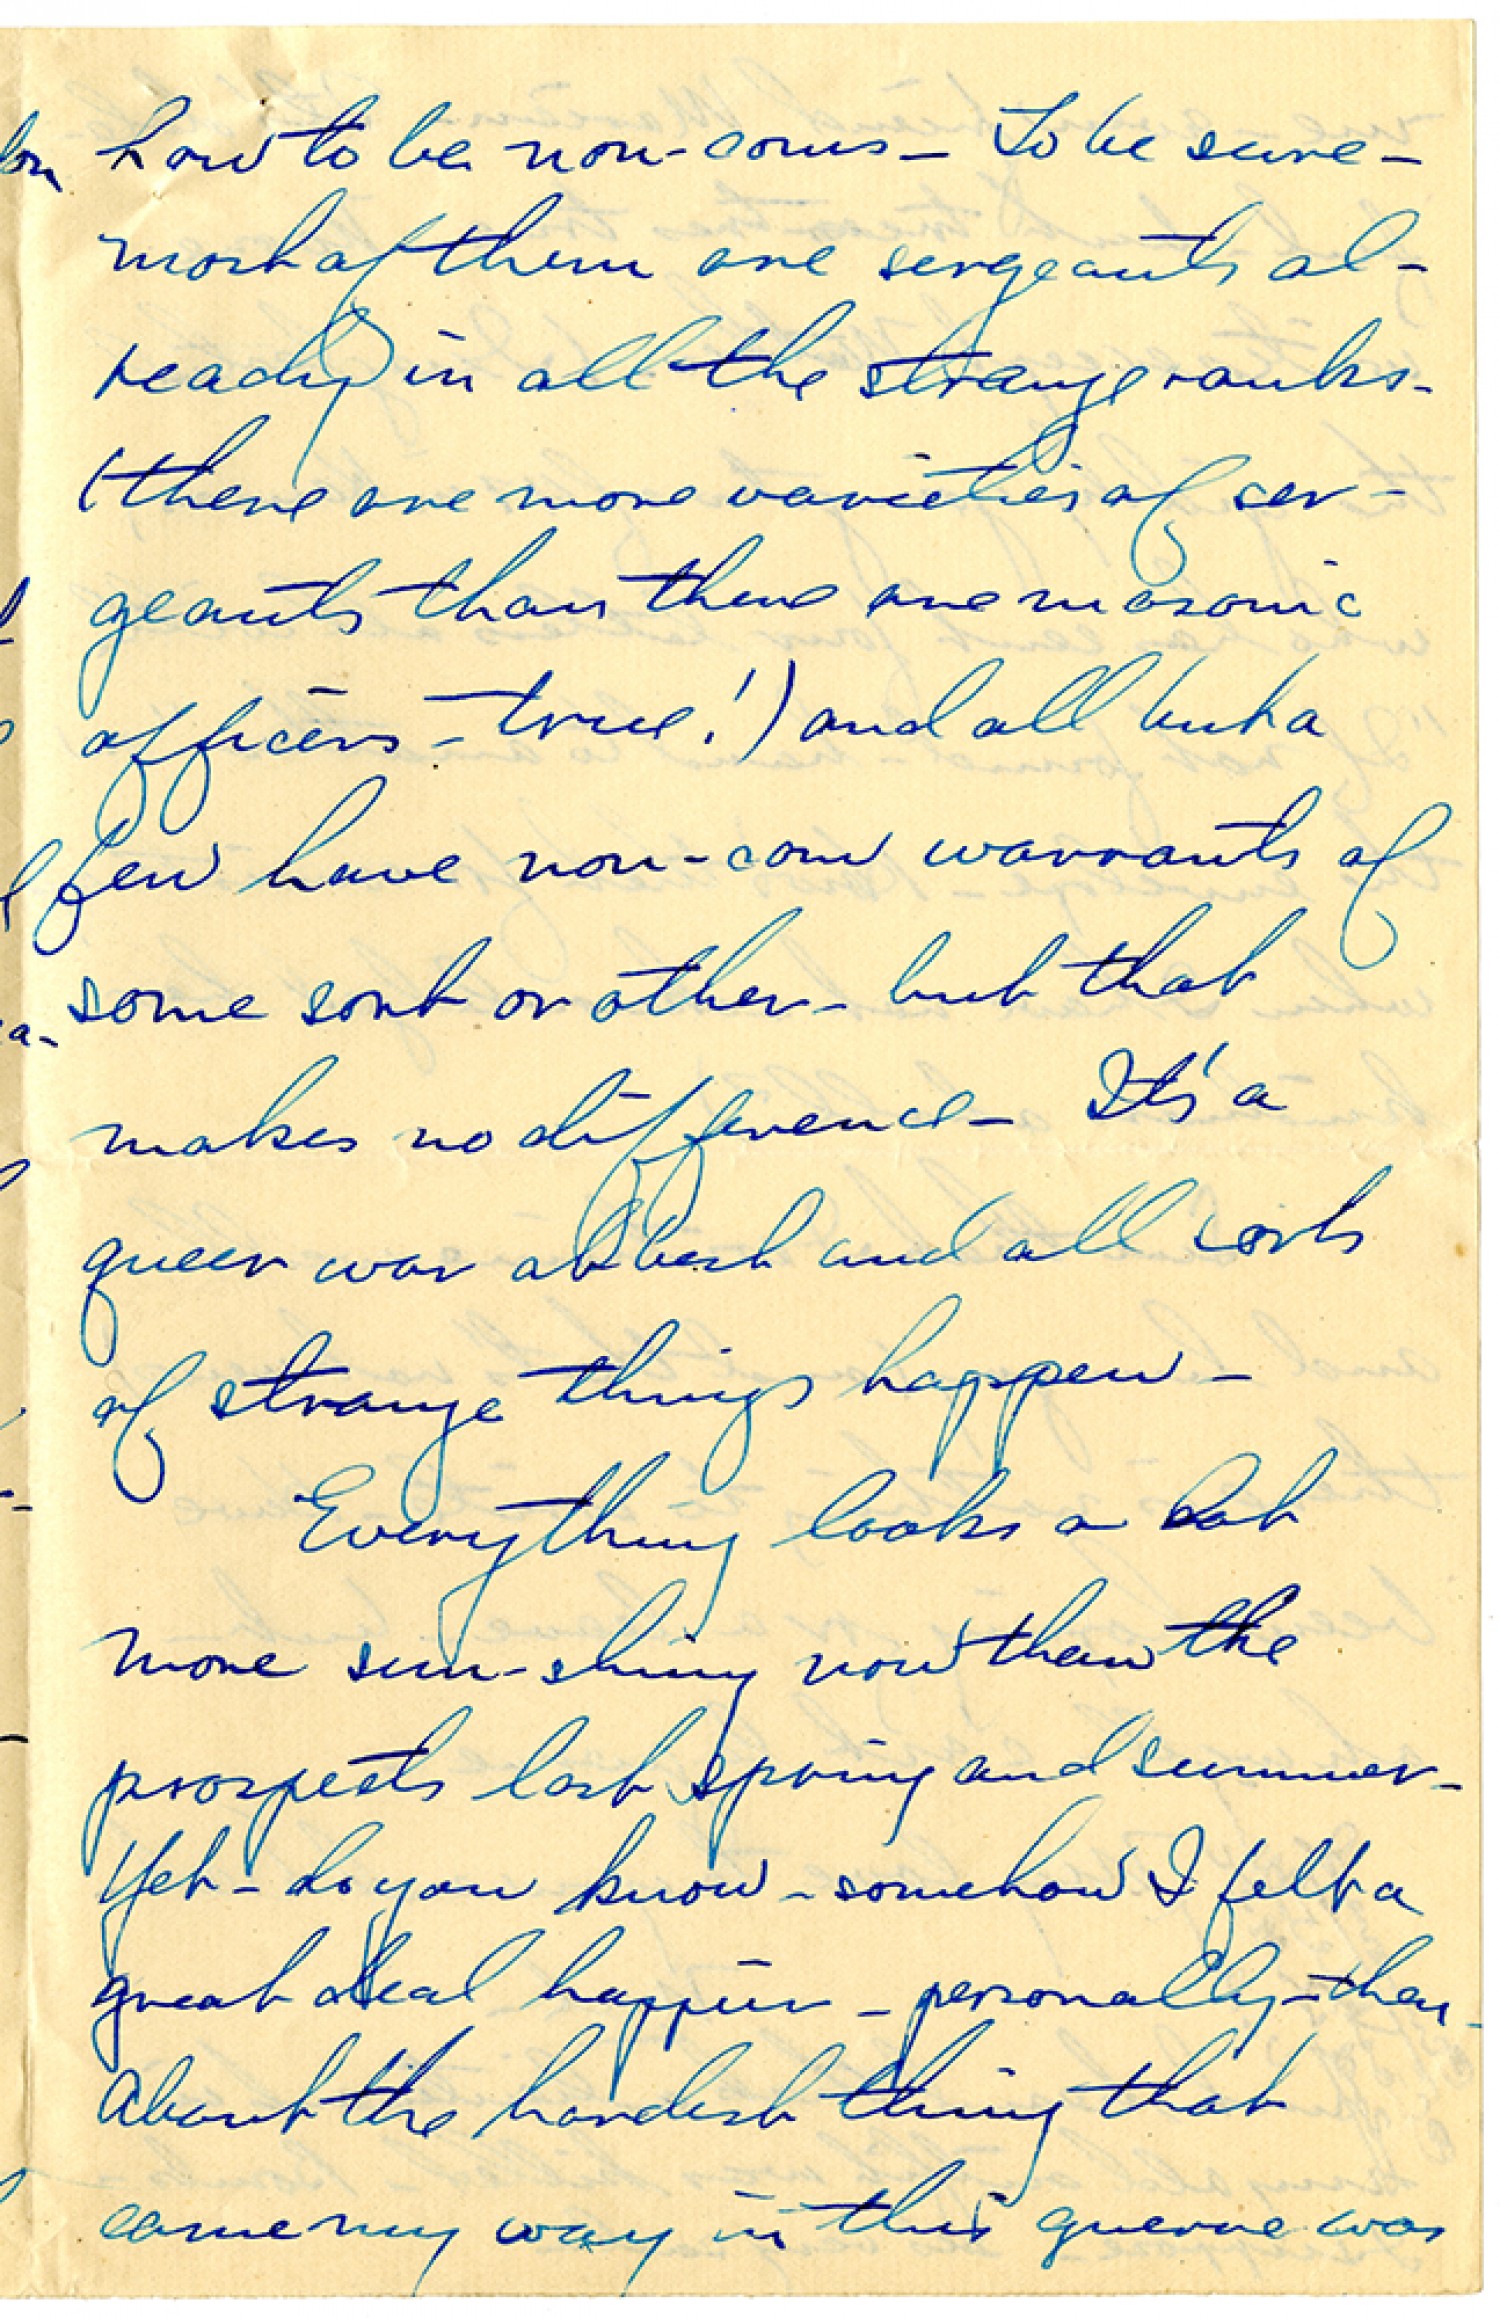 how to be non-coms - To be sure -
most of them are sergeants al-
ready in all the strange ranks -
(there are more varieties of ser-
geants than there are masonic
officers - true!) and all but a
few have non-com warrants of
some sort or other - but that
makes no difference - It's a
queer war at best and all sorts
of strange things happen -
Everything looks a lot
more sun-shiny now than the
prospects last spring and summer -
Yet - do you know - somehow I felt a
great deal happier - personally - then -
About the hardest thing that
came my way in this guerre was